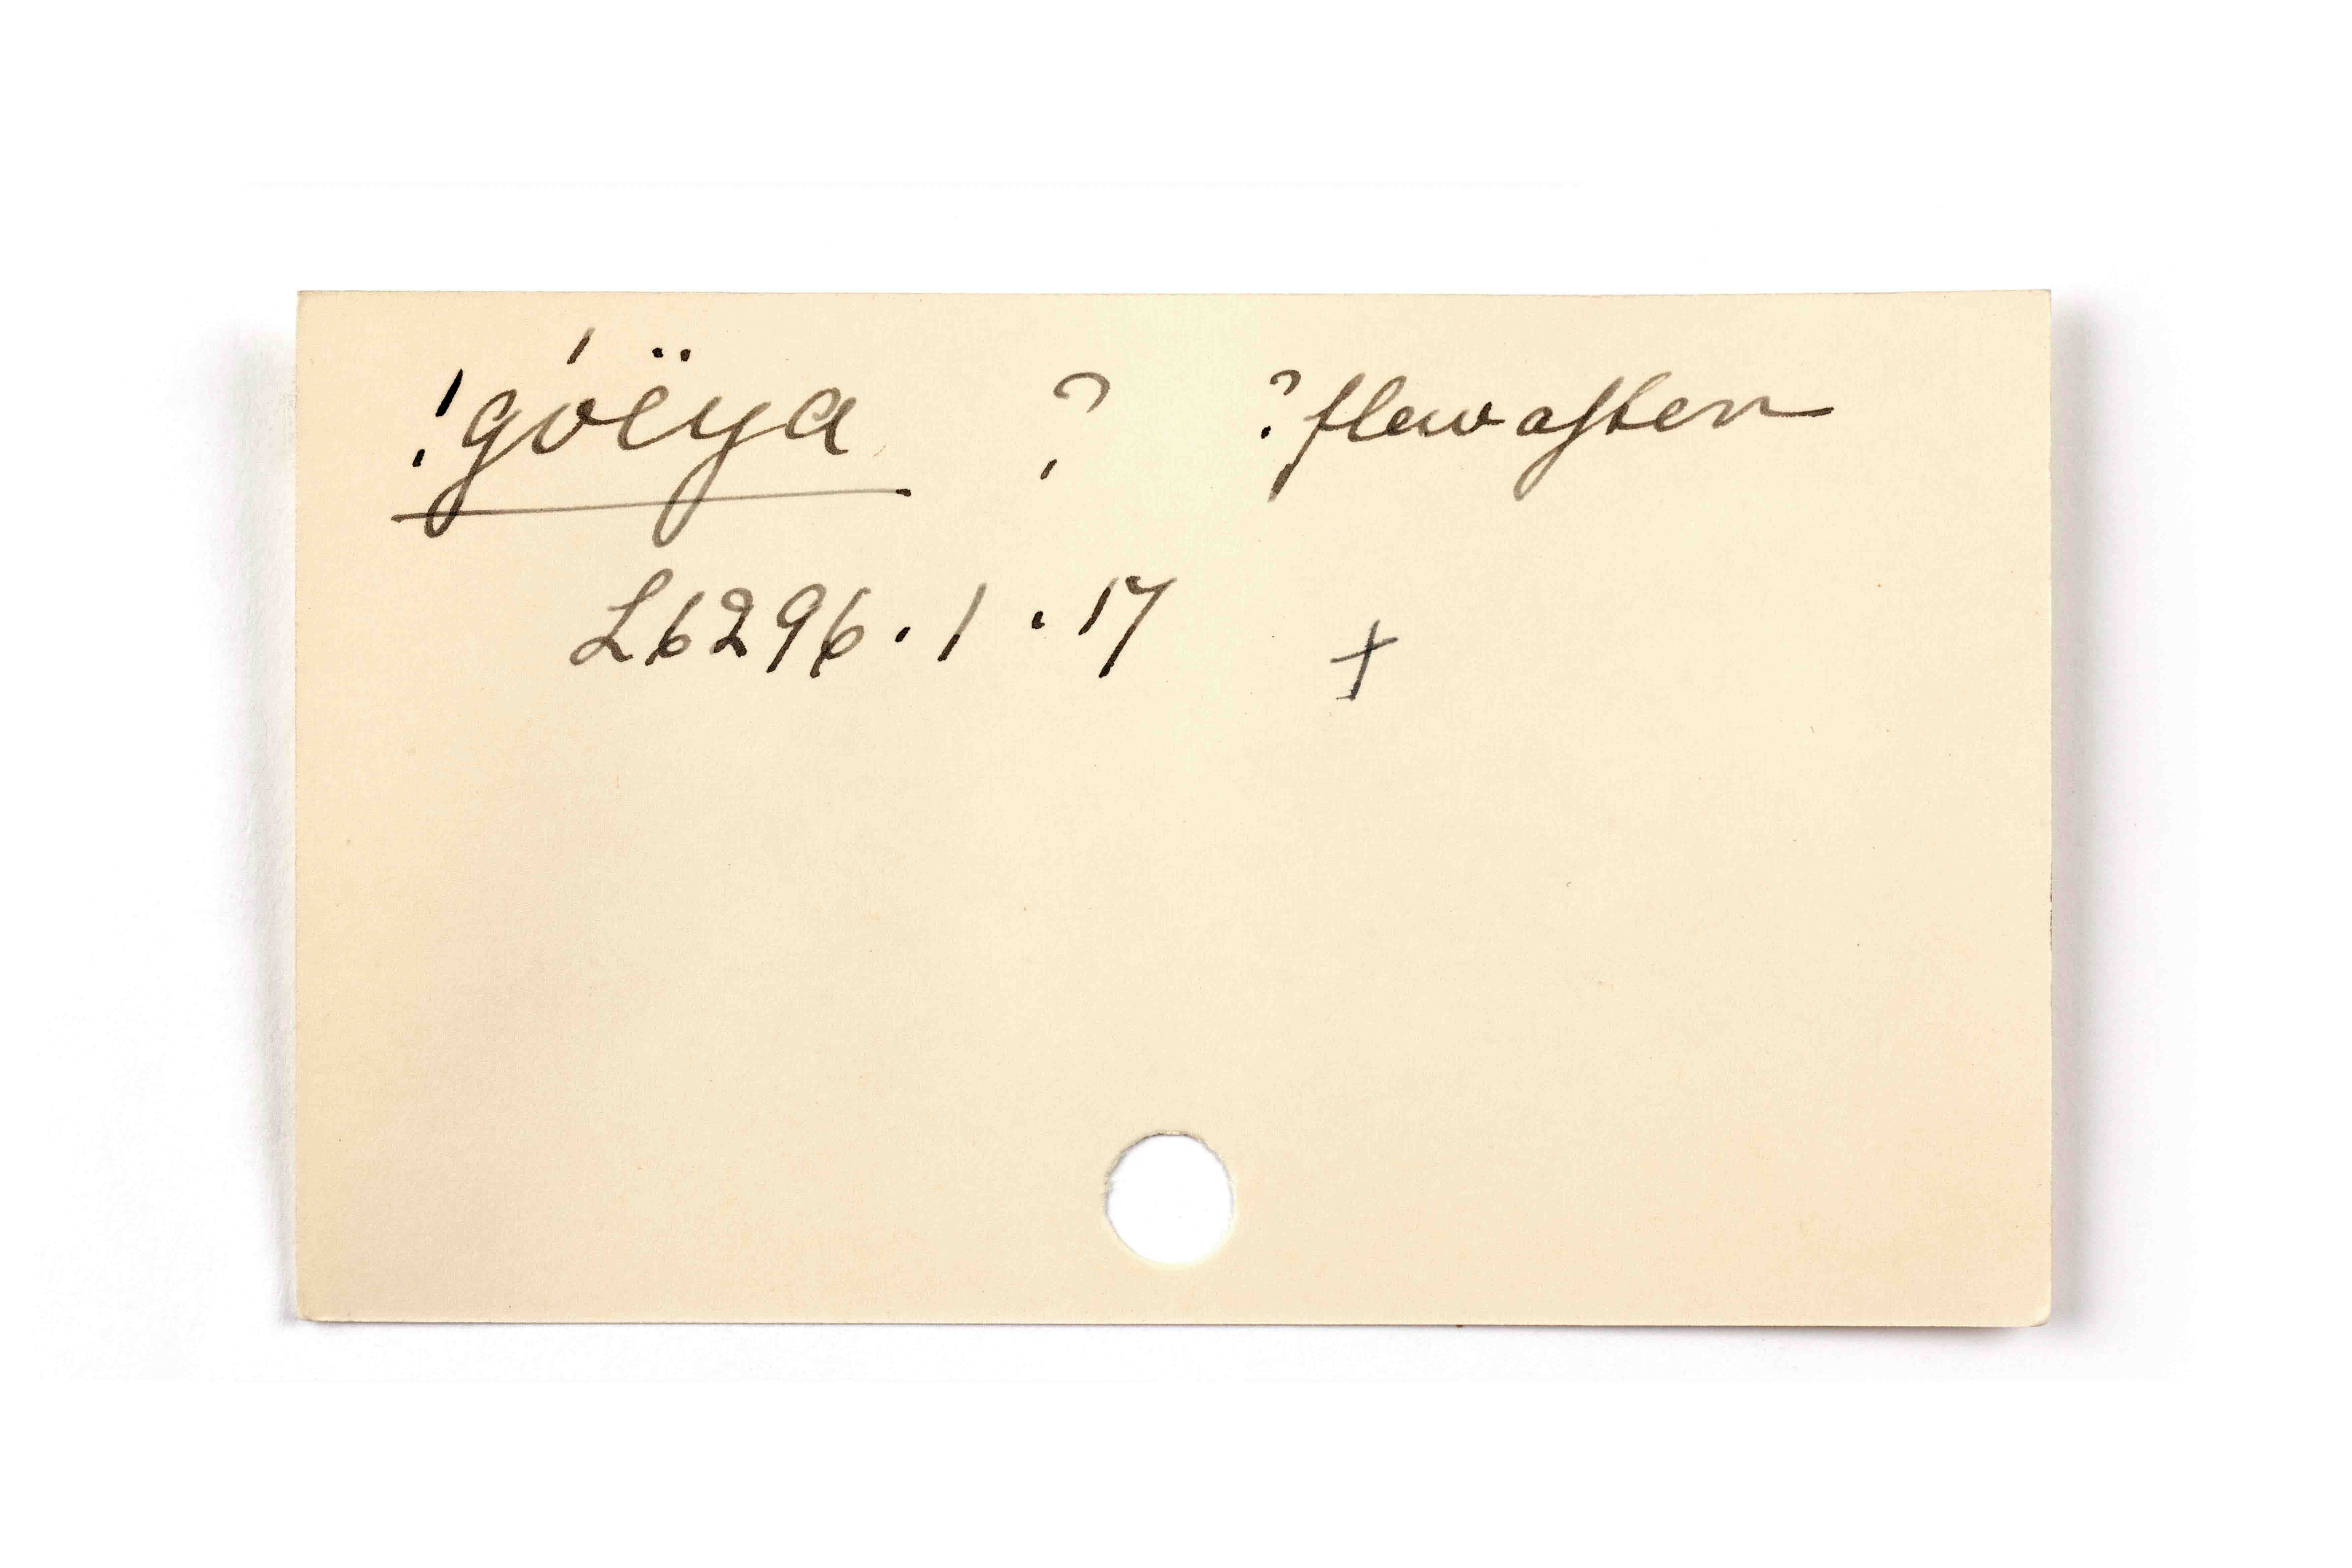 !góëya ? ?flew after
L6296.1.17 +